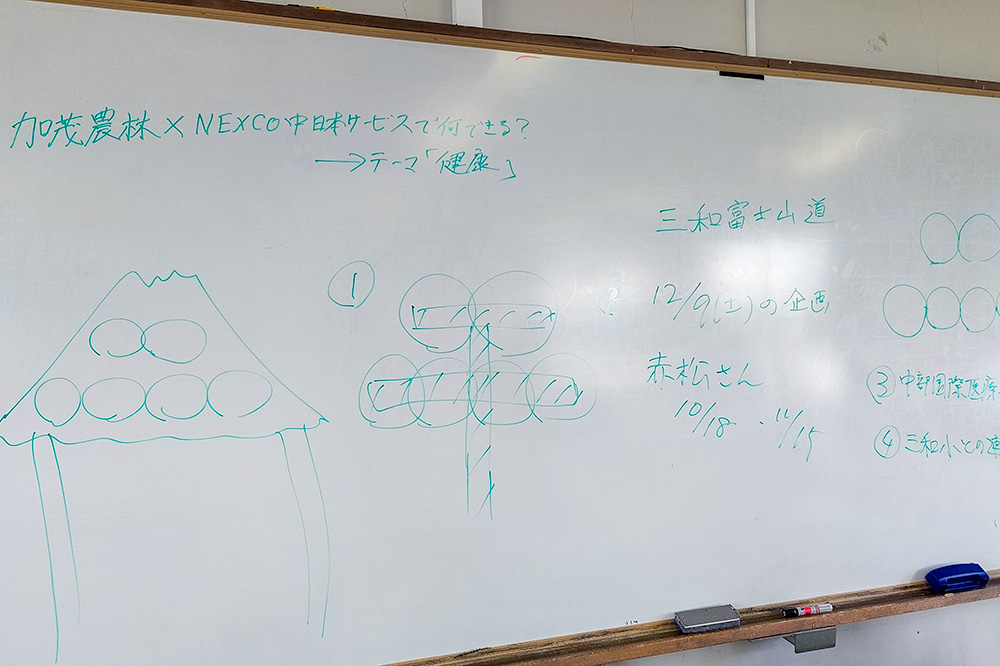 加茂農林×NEXCO中日本サービスで何できる?
→テーマ「健康」
①
三和富士山道
12/9(土)の企画
赤松さん
10/18 ・ 11/15
③中部国際医療
④三和小との連